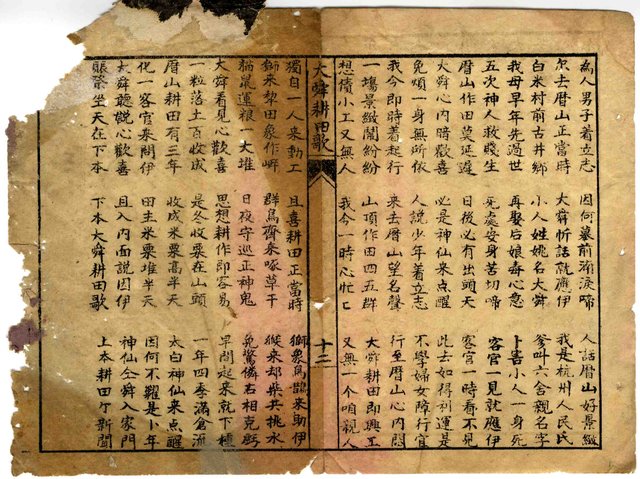 為人男子着立志 因何墓前淚啼 人話曆山好景緻
尔去曆山正當時 大舜忻話就應伊 我是杭州人民氏
白米村前古井鄉 小人姓姚名大舜 爹叫六舍親名字
我母早年先過世 再娶后娘奇心意 卜害小人一身死
五次神人救賤生 死處安身苦切啼 客官一見就應伊
曆山作田莫延遲 日後必有出頭天 客官一時看不見
大舜心內暗歡喜 必是神仙來点醒 此去如得利運是
免煩一身無所依 人說少年着立志 不學婦女障行宜
我今即時着起行 來去曆山望名聲 行至曆山心內悶
一塲景緻鬧紛紛 山頂作田四五群 大舜耕田即興工
想債小工又無人 我今一時心忙亡 又無一個咱親人
大舜耕田歌 十二
獨自一人來動工 且喜耕田正當時 獅象鳥鵲來助伊
獅來犁田象作岸 群鳥齊來啄草干 猴來却柴共挑水
鼠運粮一大堆 日夜守巡正神鬼 免驚憐右相克虧
大舜看見心歡喜 思想耕作即容易 早間起來就下種
一粒落土百收成 是冬收粟在山頭 一年四季滿倉流
曆山耕田有三年 收成米粟高半天 太白神仙來点醒
化一客官來問伊 田主米粟堆半天 因何不糶是卜年
大舜聽說心歡喜 且入內面說因伊 神仙仝舜入家門
坐天在下本 下本大舜耕田歌 上本耕田乍新聞